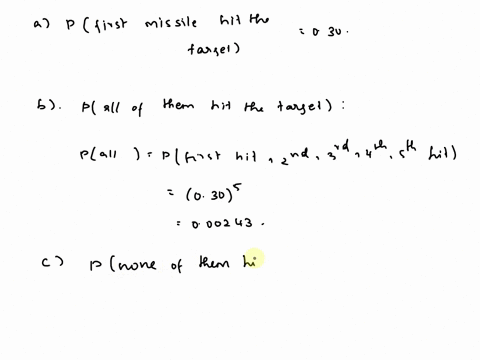 a) P (first missile hit the
target) = 0.30.
b). P(all of them hit the target) :
P(all ) = P(first hit, 2nd, 3rd, 4th, 5th hit)
= (0.30)^5
= 0.00243.
c) P (none of them hi